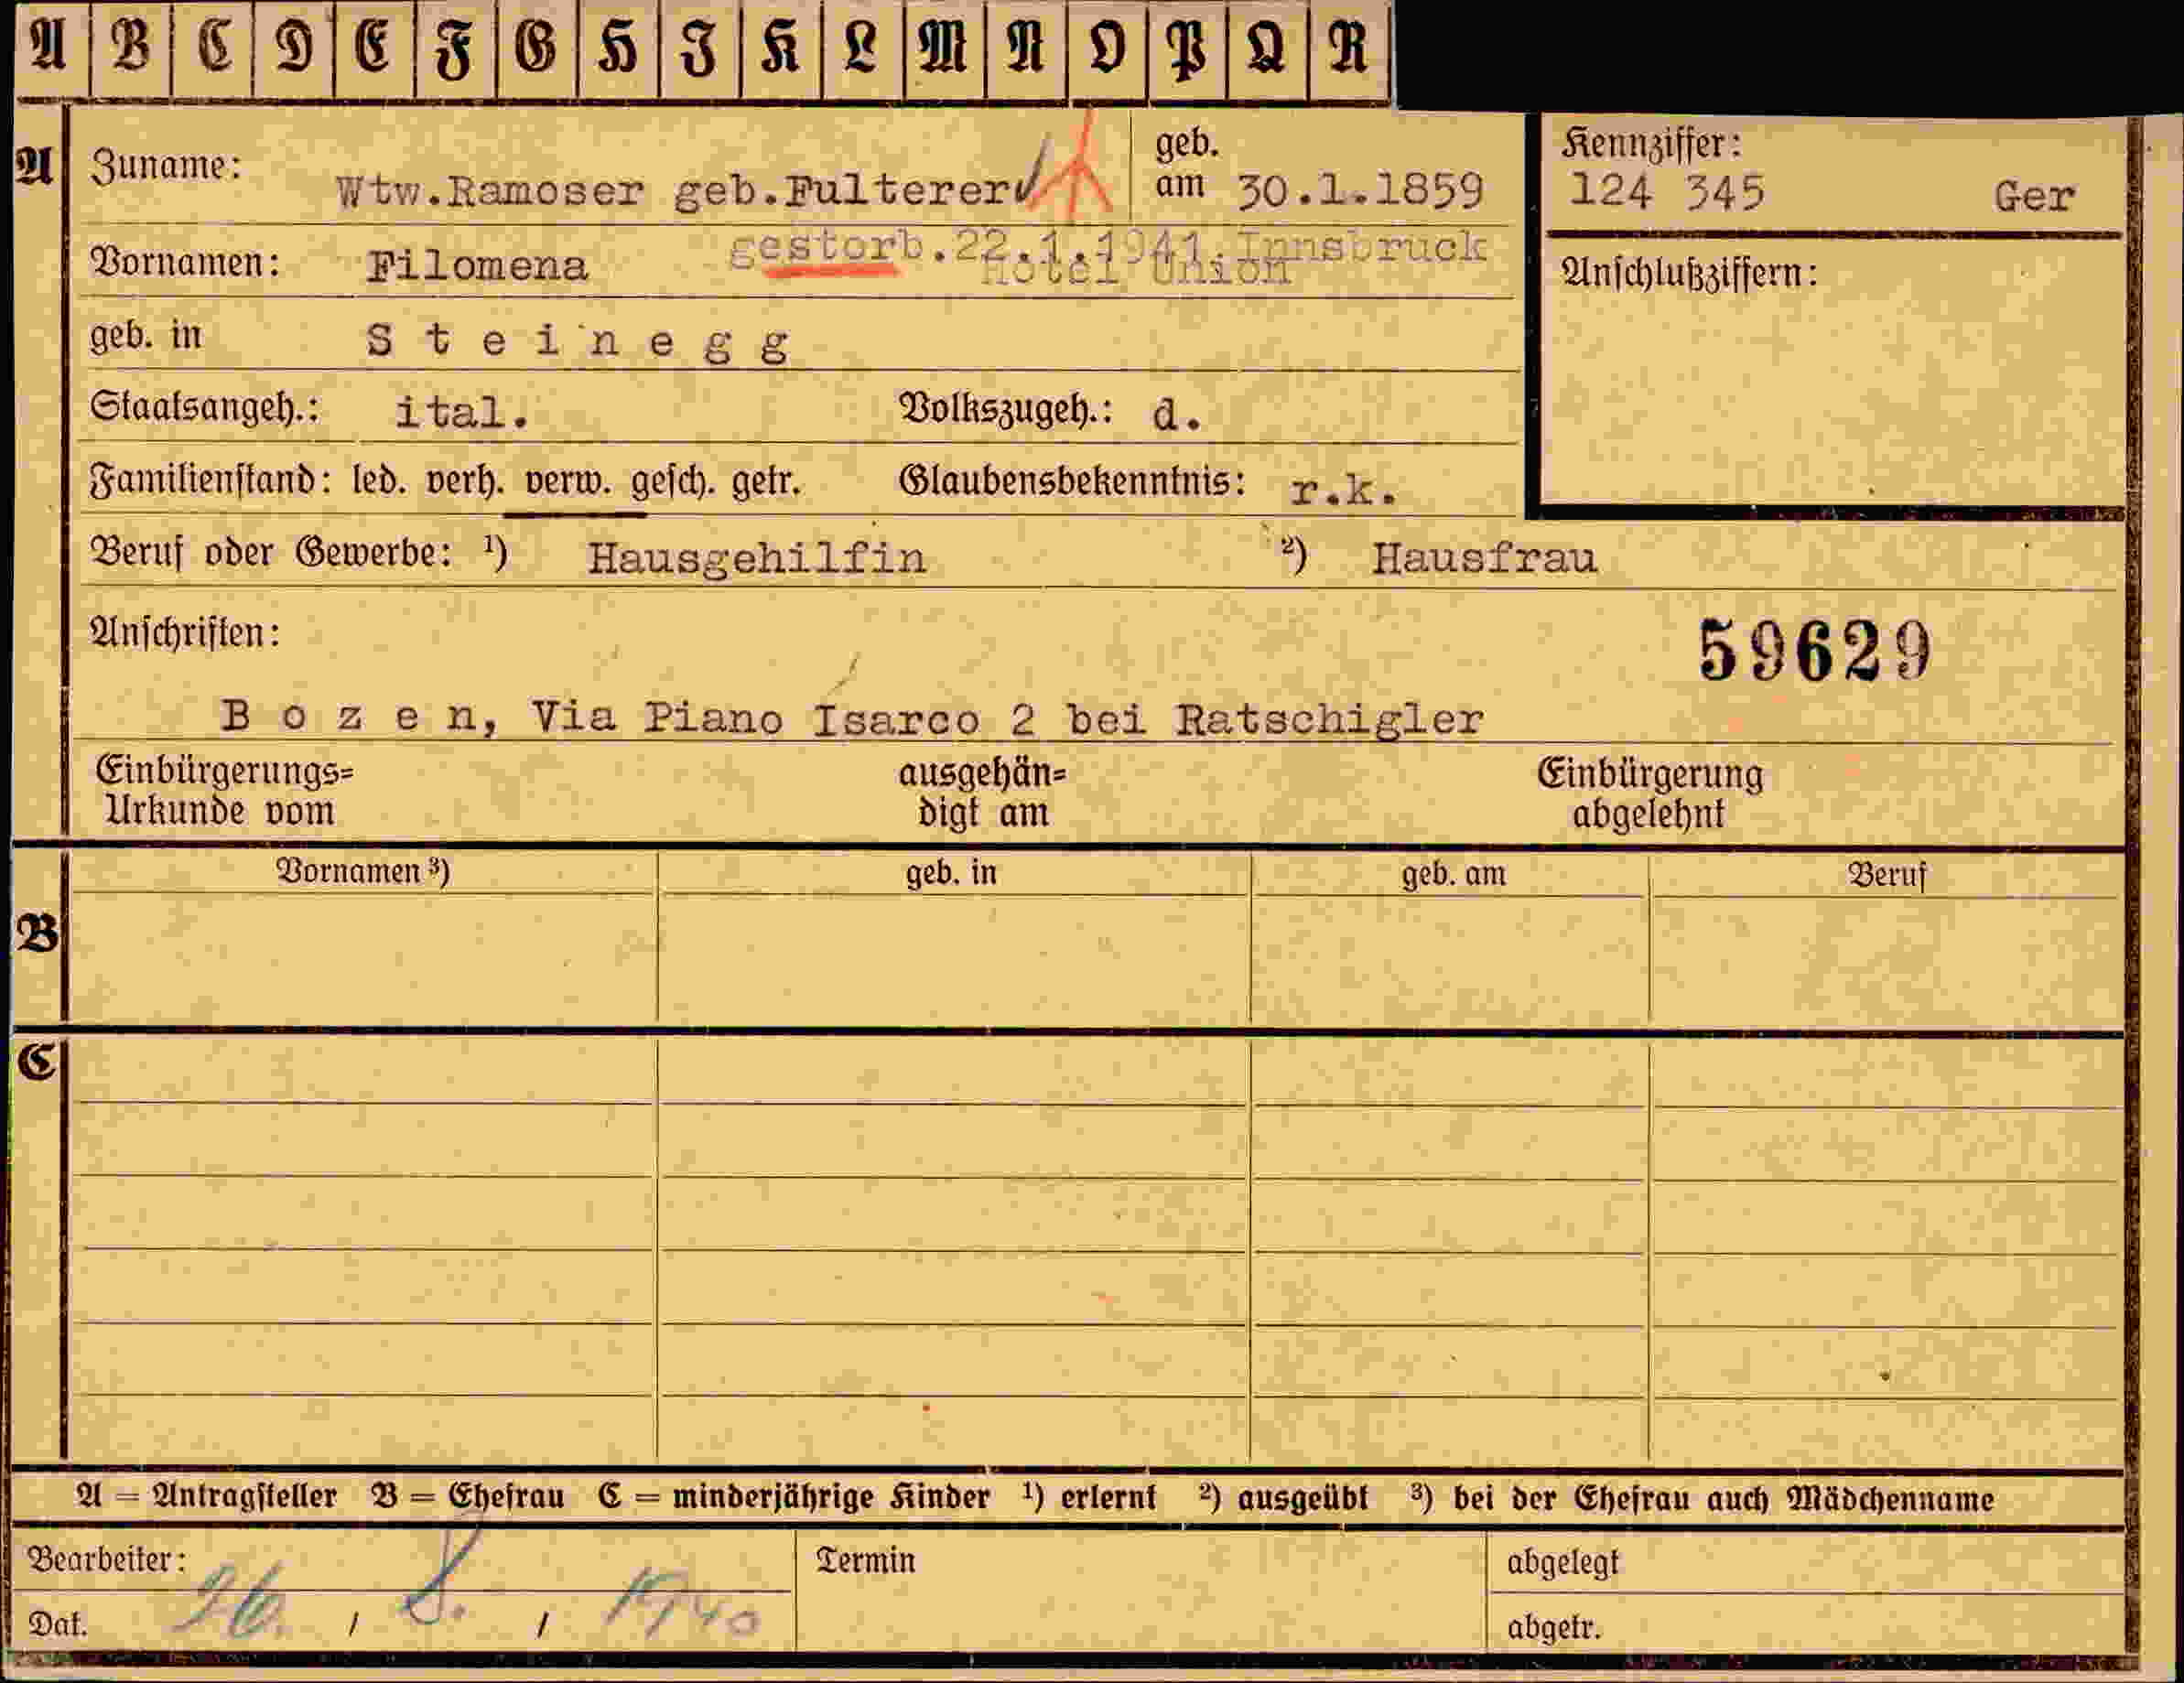 A B C D E F G H J K L M N O P Q R
A Zuname: Wtw.Ramoser geb.Fulterer geb. am 30.1.1859
Kennziffer: 124 345 Ger
Vornamen: Filomena gestorb.22.1.1941.Innsbruck
Hotel Union
Anschlußziffern:
geb. in Steinegg
Staatsangeh.: ital. Volkszugeh.: d.
Familienstand: led. verh. verw. gesch. getr. Glaubensbekenntnis: r.k.
Beruf oder Gewerbe: ¹) Hausgehilfin ²) Hausfrau
Anschriften:
59629
Bozen, Via Piano Isarco 2 bei Ratschigler
Einbürgerungs= ausgehän= Einbürgerung
Urkunde vom digt am abgelehnt
Vornamen ³) geb. in geb. am Beruf
B
C
A = Antragsteller B = Ehefrau C = minderjährige Kinder ¹) erlernt ²) ausgeübt ³) bei der Ehefrau auch Mädchenname
Bearbeiter: Termin abgelegt
Dat. 26. / 8. / 1940 abgetr.